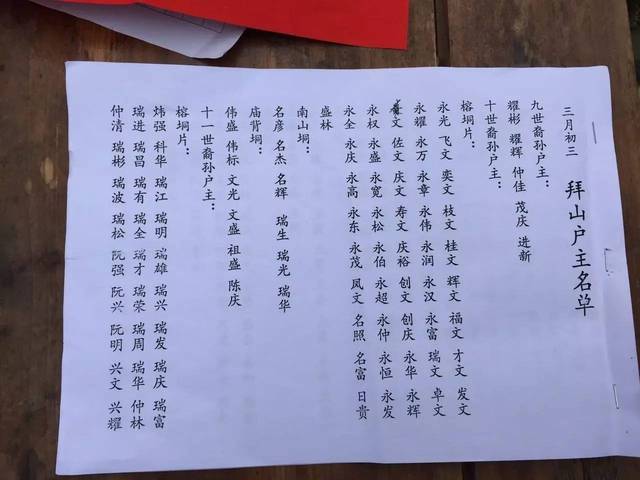 三月初三 拜山户主名单
九世裔孙户主：
耀彬 耀辉 仲佳 茂庆 进新
十世裔孙户主：
榕垌片：
永光 飞文 奕文 枝文 桂文 辉文 福文 才文 发文
永耀 永万 永章 永伟 永润 永汉 永富 瑞文 卓文
文 佐文 庆文 寿文 庆裕 创文 创庆 永华 永辉
永权 永盛 永宽 永松 永伯 永超 永仲 永恒 永发
永全 永庆 永高 永东 永茂 凤文 名照 名富 日贵
盛林
南山垌：
名彦 名杰 名辉 瑞生 瑞光 瑞华
庙背垌：
伟盛 伟标 文光 文盛 祖盛 陈庆
十一世裔孙户主：
榕垌片：
炜强 科华 瑞江 瑞明 瑞雄 瑞兴 瑞发 瑞庆 瑞富
瑞进 瑞昌 瑞有 瑞全 瑞才 瑞荣 瑞周 瑞华 仲林
仲清 瑞彬 瑞波 瑞松 阮强 阮兴 阮明 兴文 兴耀